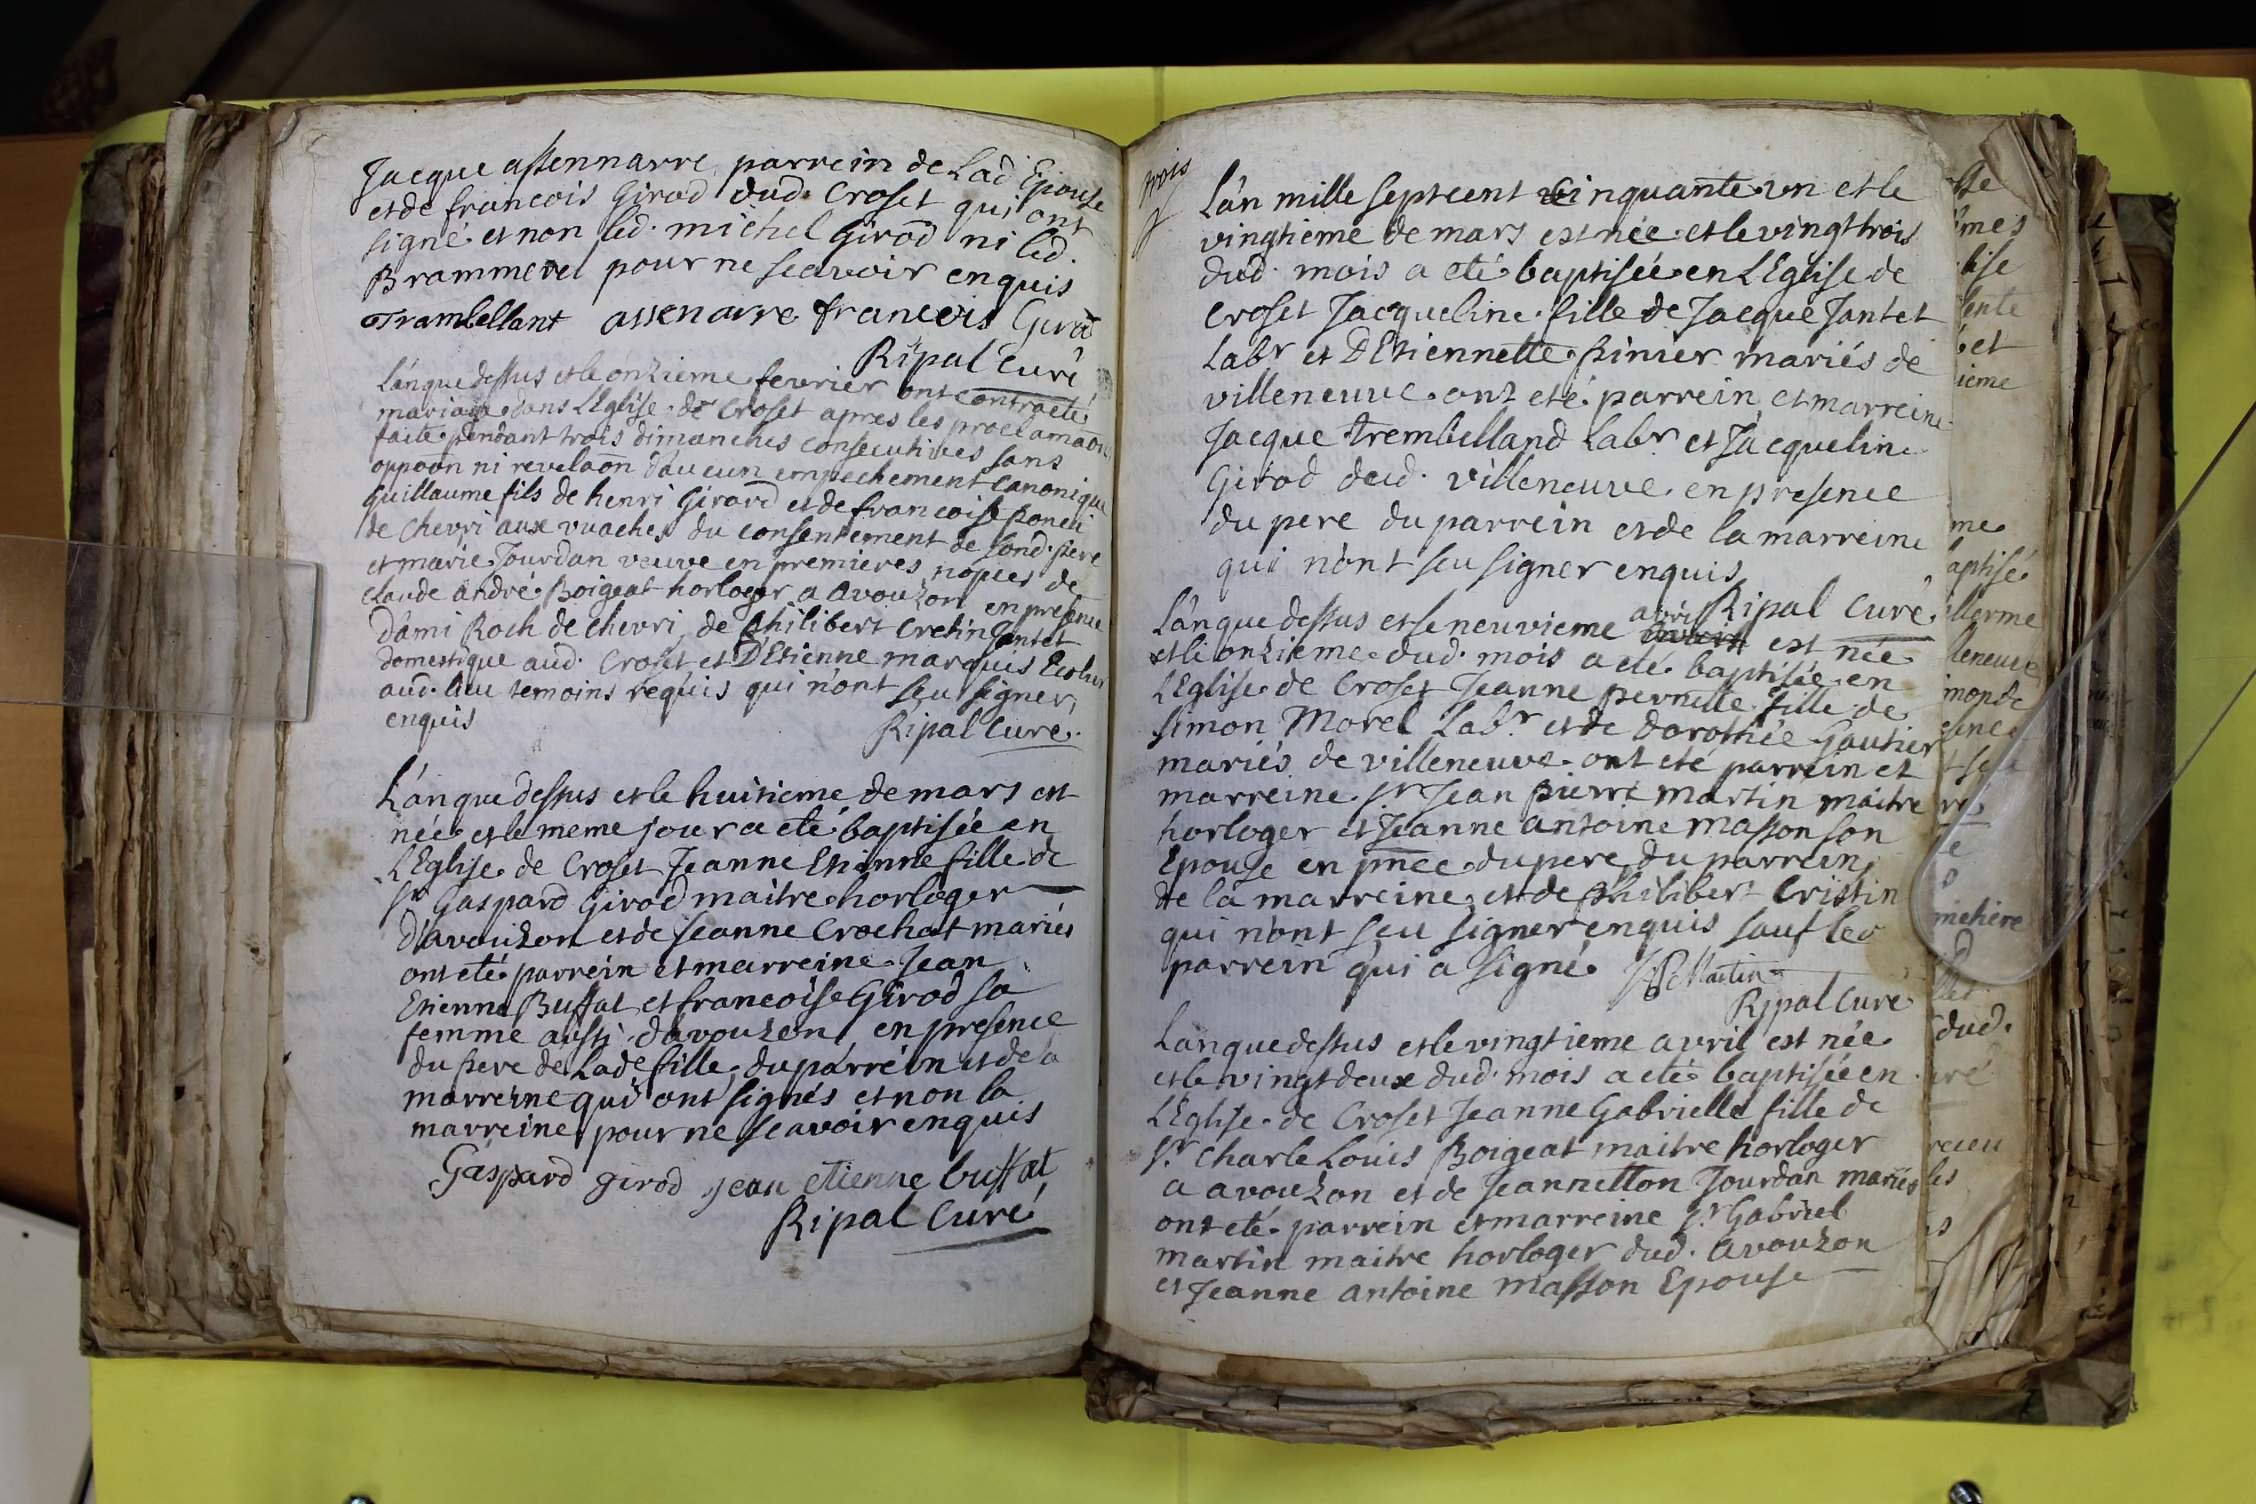 Jacque assennarre parrein de Lad Epouse
et de francois Girod dud. Croset qui ont
signé et non led. michel Girod ni led.
Brammerel pour ne scavoir enquis
Trambellant assenarre francois Girod
Ripal Curé
L'an que dessus et le onzieme fevrier ont contracté
mariage dans L'Eglise de Croset apres les proclamaõns
faite pendant trois dimanches consecutives sans
oppoõn ni revelaõn d'aucun empechement canonique
Guillaume fils de henri Girard et de francoise Poncei
de Chevri aux vuaches du consentement de sond. pere
et marie Jourdan veuve en premieres nopces de
claude andré Boigeat horloger a avouzon en presence
d'ami Roch de chevri, de Philibert Cretin Jantet
domestique aud. Croset et D'Etienne marquis Ecolier
aud. lieu temoins requis qui n'ont sçu signer
enquis
Ripal Curé.
L'an que dessus et le huitieme de mars est
née et le meme jour a eté baptisée en
L'Eglise de Croset Jeanne Etienne fille de
Sr Gaspard Girod maitre horloger
d'avouzon et de Jeanne Crochat mariés
ont eté parrein et marreine Jean
Etienne Buffat et francoise Girod sa
femme aussi d'avouzon en presence
du pere de Lade fille, du parrein et de la
marreine qui ont signés et non la
marreine pour ne scavoir enquis
Gaspard girod jean etienne buffat
Ripal Curé
trois
L'an mille septcent cinquante un et le
vingtieme de mars est née et le vingt trois
dud. mois a eté baptisée en L'Eglise de
Croset Jacqueline fille de Jacque Jantet
Labr et D'Etiennette Pinier mariés de
villeneuve ont eté parrein et marreine
Jacque trembelland Labr et Jacqueline
Girod dud. villeneuve en presence
du pere du parrein et de la marreine
qui n'ont sçu signer enquis
Ripal Curé
L'an que dessus et le neuvieme avril est née
et le onzieme dud. mois a eté baptisée en
L'Eglise de Croset Jeanne pernette fille de
simon Morel Labr et de Dorothée Gautier
mariés de villeneuve ont eté parrein et
marreine Sr Jean pierre martin maitre
horloger et Jeanne antoine masson son
Epouse en pñce du pere, du parrein,
de la marreine, et de Philibert Cristin
qui n'ont sçu signer enquis sauf led
parrein qui a signé. JP Martin
Ripal Curé
L'an que dessus et le vingtieme avril est née
et le vingt deux dud. mois a eté baptisée en
L'Eglise de Croset Jeanne Gabrielle fille de
Sr. Charle Louis Boigeat maitre horloger
a avouzon et de Jeannetton Jourdan mariés
ont eté parrein et marreine Sr Gabriel
martin maitre horloger dud. avouzon
et Jeanne antoine masson Epouse